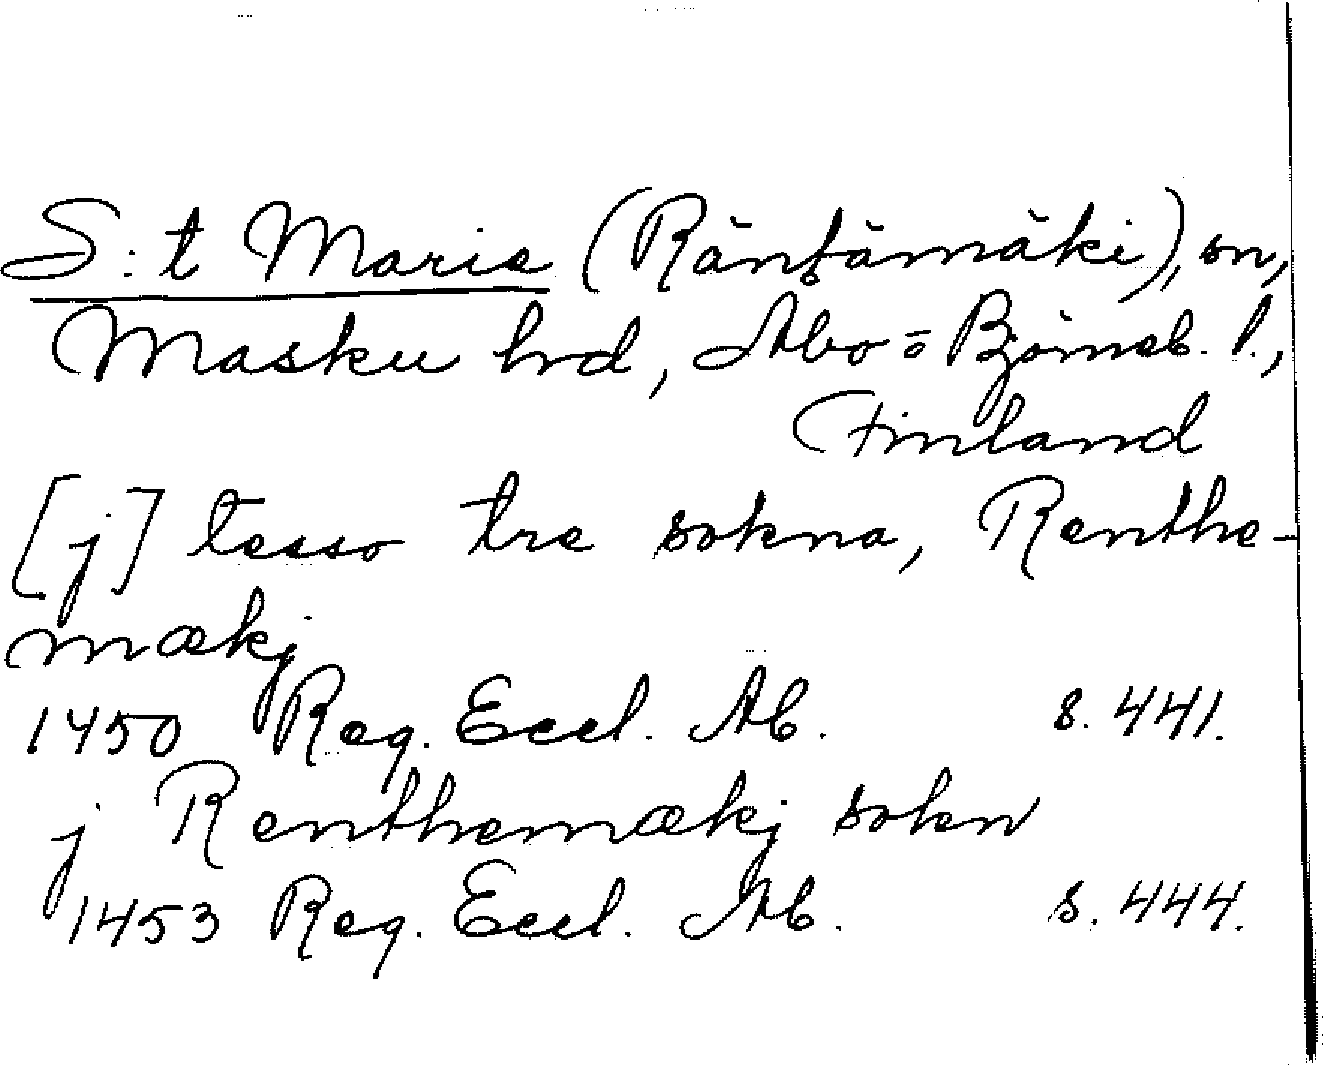 S:t Maria (Räntämäki), sn,
Masku hrd, Åbo=Björneb. l.,
Finland
[j] tesso tre sokna, Renthe-
mækj
1450 Reg. Eccl. Ab. s. 441.
j Renthemækj sokn
1453 Reg. Eccl. Ab. s. 444.